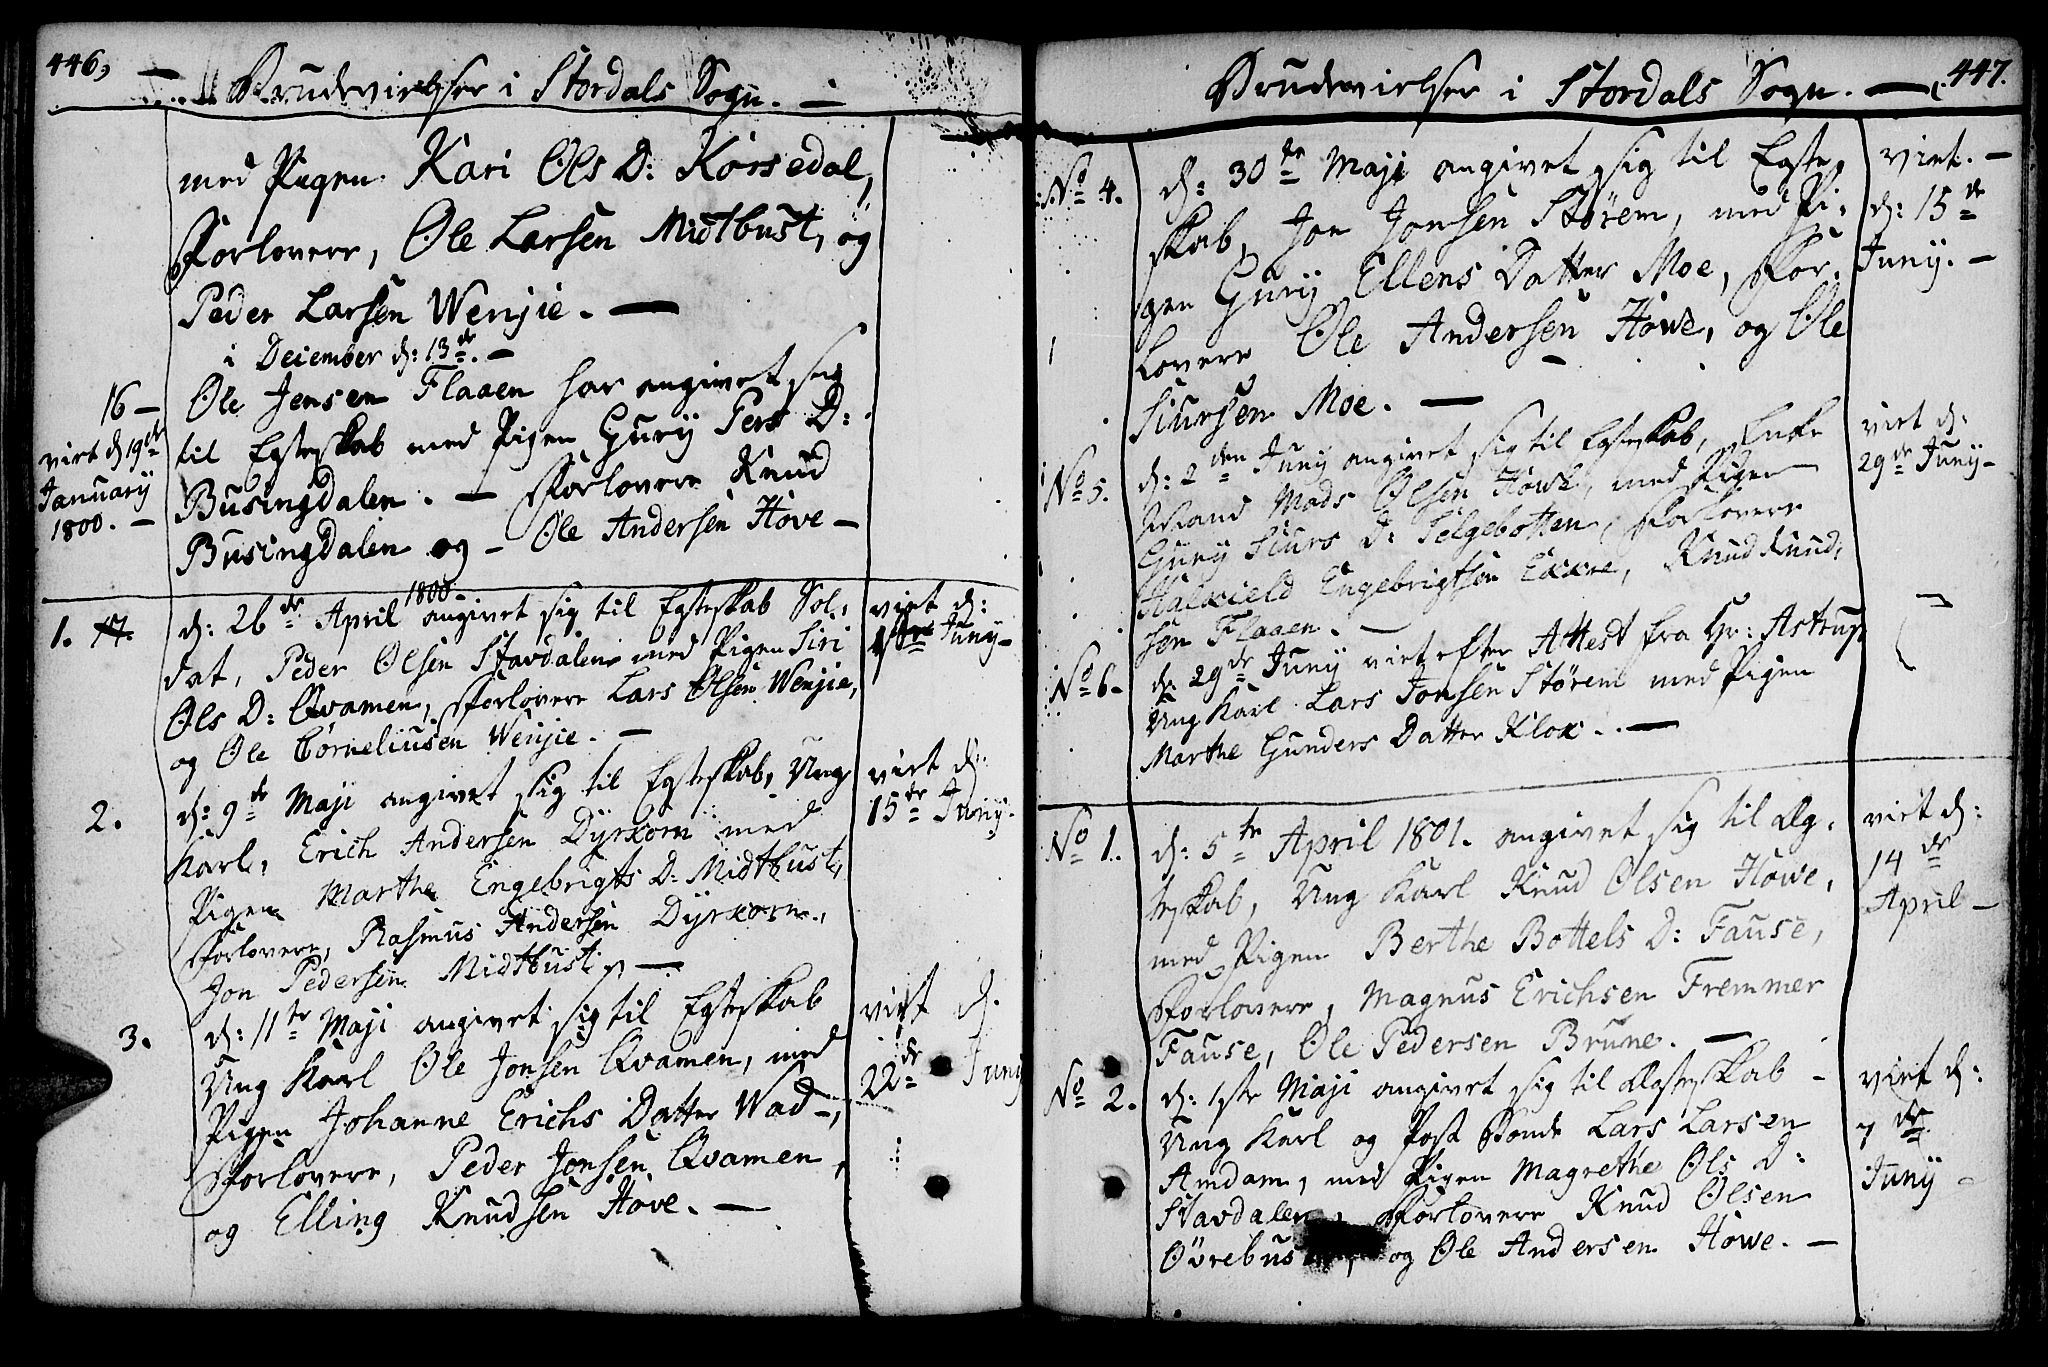 446,
Brudevielser i Stordals Sogn. —
med Pigen Kari Ols D: Korsedal,
Forlovere, Ole Larsen Midtbust, og
Peder Larsen Wenjie. —
i December d: 13de. —
16 —
virt d 19de
January
1800. —
Ole Jensen Flaaen har angivet sig
til Egteskab med Pigen Gury Pers D:
Busingdalen. — Forlovere Knud
Busingdalen og — Ole Andersen Hove —
1. 17.
d: 26de April 1800. angivet sig til Egteskab Sol,
dat, Peder Olsen Stavdalen med Pigen Siri
Ols D: Qvamen, Forlovere Lars Olsen Wenjie,
og Ole Corneliusen Wenjie. —
virt d:
Juny —
2.
d: 9de Maji angivet sig til Egteskab, Ung
Karl, Erich Andersen Dyrkorn med
Pigen Marthe Engebrigts D: Midtbust,
Forlovere, Rasmus Andersen Dyrkorn,
Jon Pedersen Midtbust. —
virt d:
15de Juny.
3.
d: 11te Maji angivet sig til Egteskab
Ung Karl Ole Jonsen Qvamen, med
Pigen Johanne Erichs Datter Wad —,
Forlovere, Peder Jonsen Qvamen,
og Elling Knudsen Hove. —
virt d.
22de Juny
447.
Brudevielser i Stordals Sogn. —
No 4.
d: 30te Maji angivet sig til Egte,
skab, Jon Jonsen Störem, med Pi,
gen Gury Ellens Datter Moe, For,
lovere Ole Andersen Howe, og Ole
Siursen Moe. —
virt. —
d: 15de
Juny. —
No 5.
d: 2den Juny angivet sig til Egteskab, Enke
Mand Mads Olsen Howe, med Pigen
Gury Siurs D: Selgebotten, Forlovere
Halkield Engebrigtsen Exkre, Knud Knud,
sen Flaaen. —
virt d:
29de Juny —
No 6.
d: 29de Juny virt efter Attest fra Hr: Astrup
Ung Karl Lars Jonsen Störem med Pigen
Marthe Gunders Datter Klok. —
No 1.
d: 5te April 1801. angivet sig til Æg,
teskab, Ung Karl Knud Olsen Howe,
med Pigen Berthe Bottels D: Fause,
Forlovere, Magnus Erichsen Fremmer
Fause, Ole Pedersen Brune. —
virt d:
14de
April —
No 2.
d: 1ste Maji angivet sig til Ægteskab —
Ung Karl og Post Bonde Lars Larsen
Amdam, med Pigen Magrethe Ols D:
Stavdalen, Forlovere Knud Olsen
og Ole Andersen Howe. —
virt d:
7de
Juny —